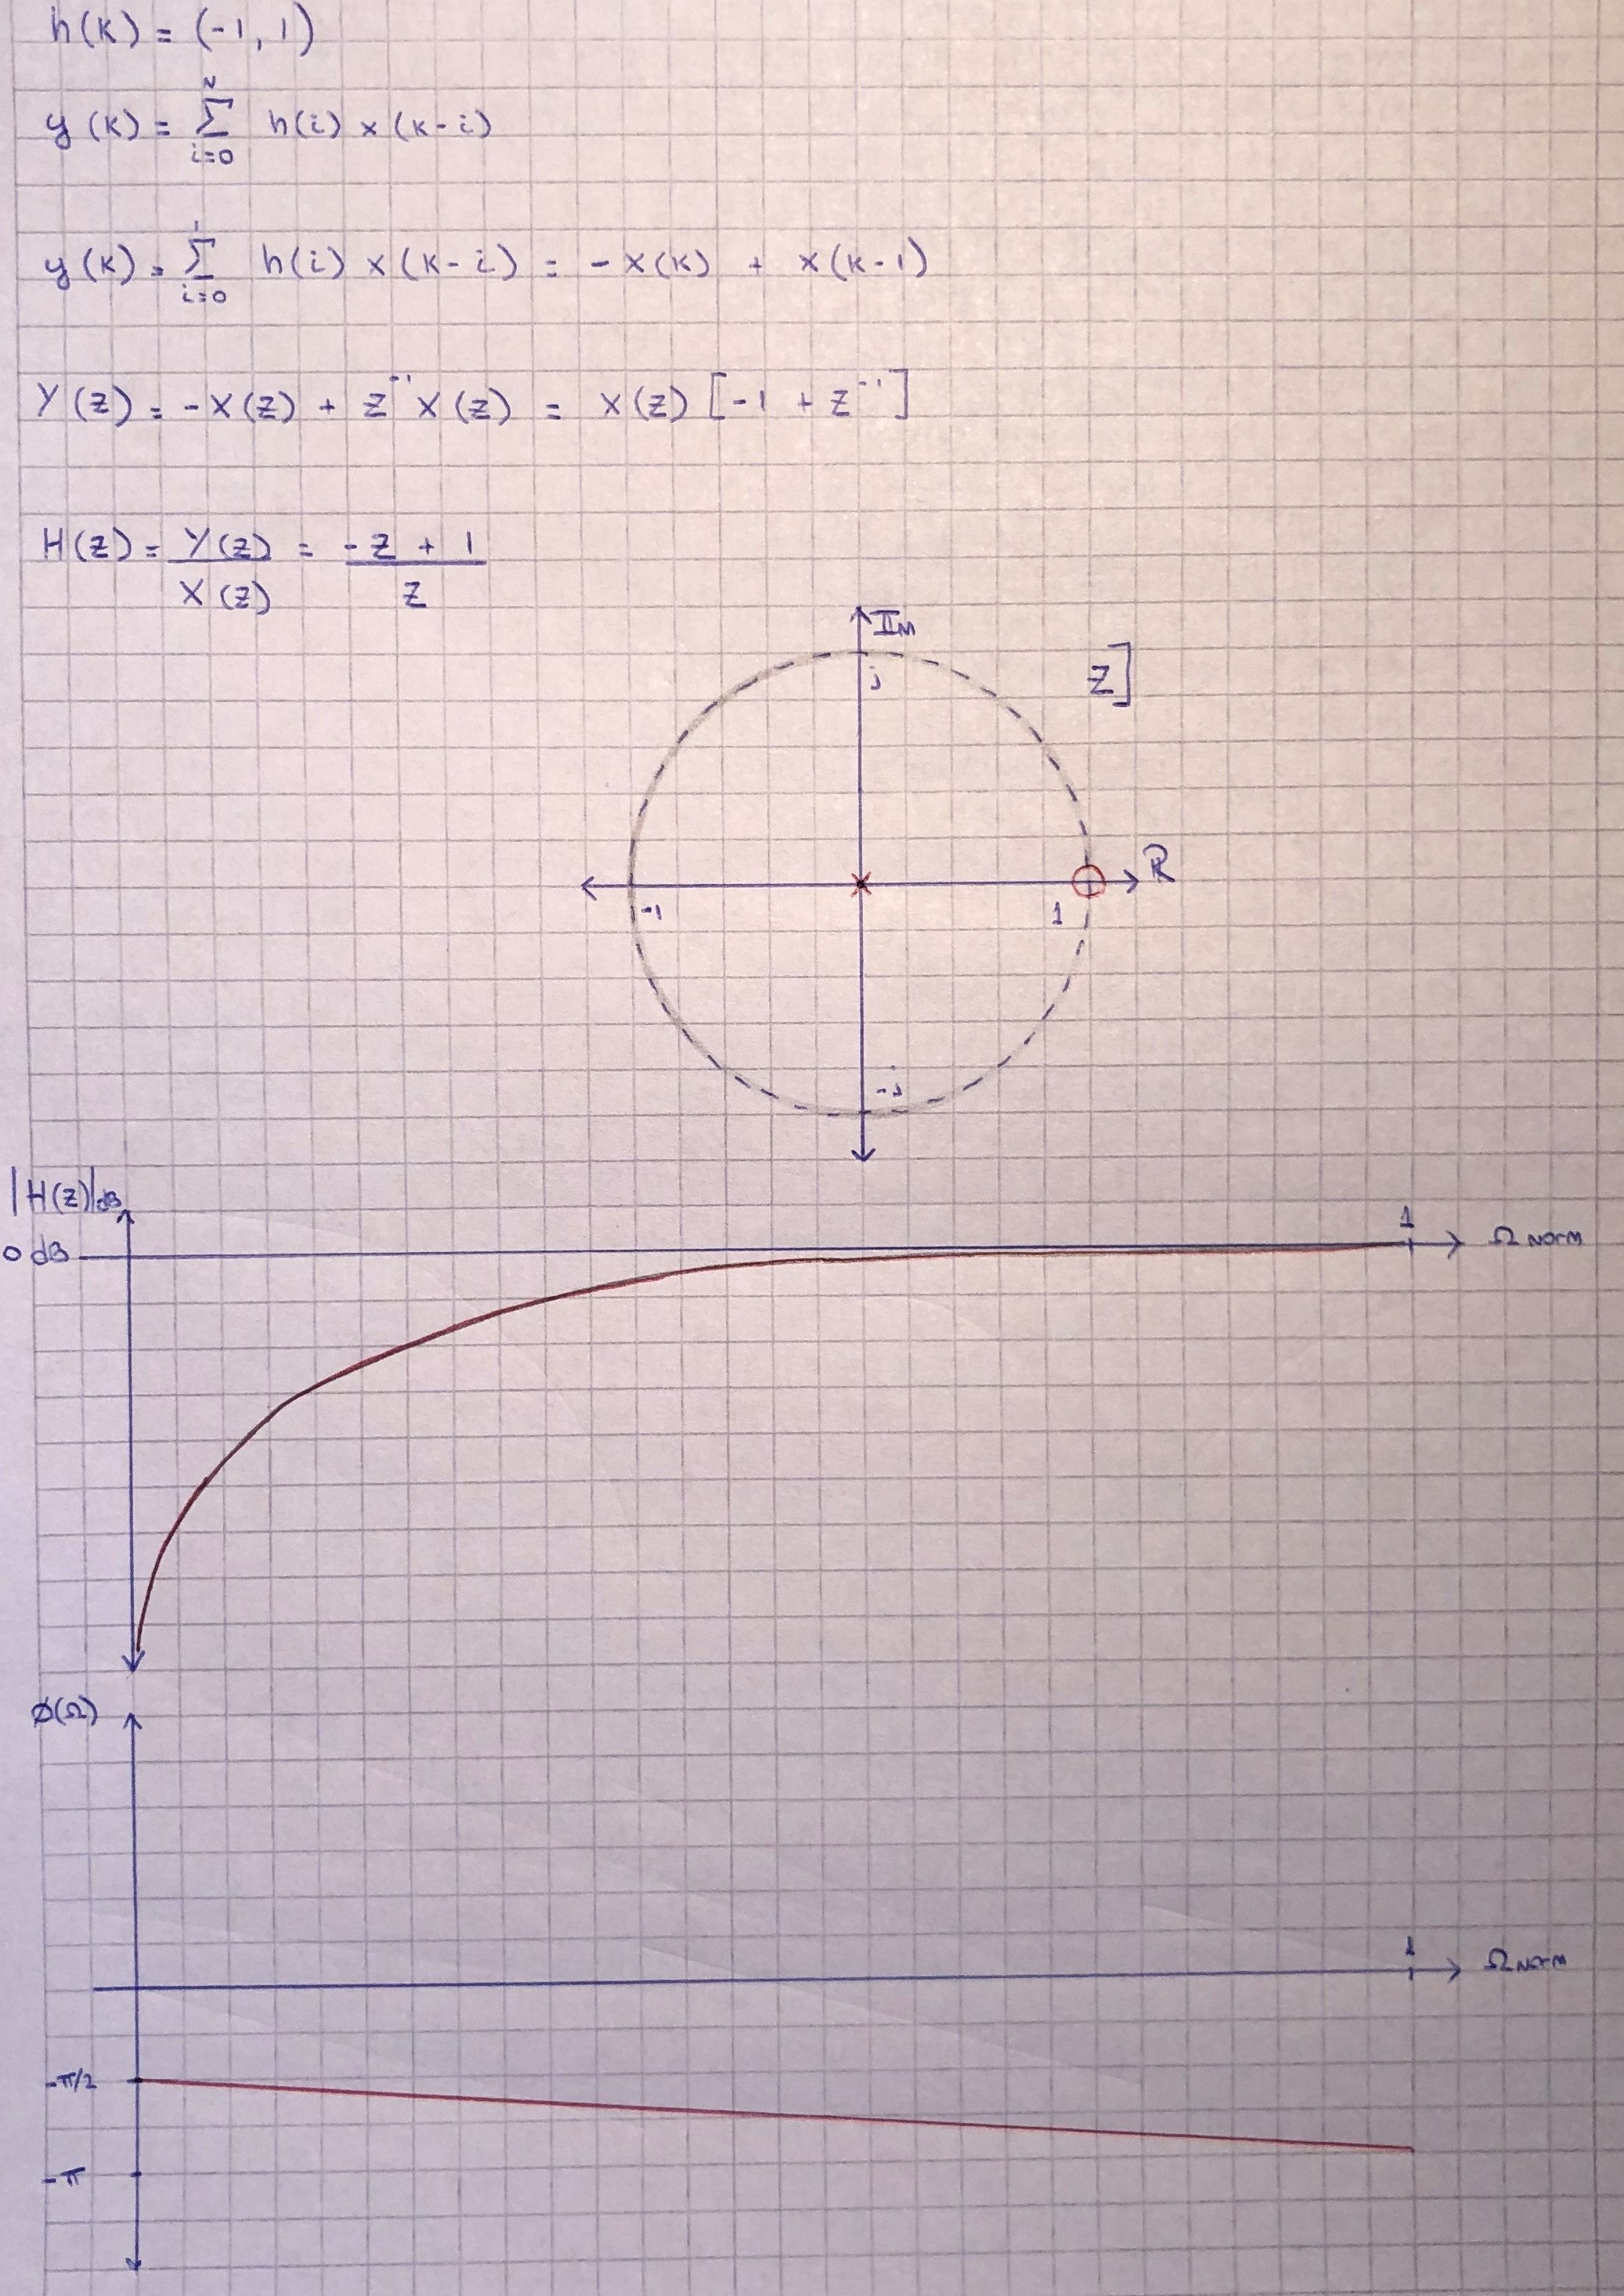 h(k) = (-1, 1)
y(k) = N Σ i=0 h(i) x(k-i)
y(k) = 1 Σ i=0 h(i) x(k-i) = -x(k) + x(k-1)
Y(z) = -X(z) + z⁻¹ X(z) = X(z) [-1 + z⁻¹]
H(z) = Y(z) / X(z) = -z + 1 / z
Im
j
z]
R
-1
1
-j
|H(z)|dB
1
0 dB
Ω Norm
ø(Ω)
1
Ω Norm
-π/2
-π